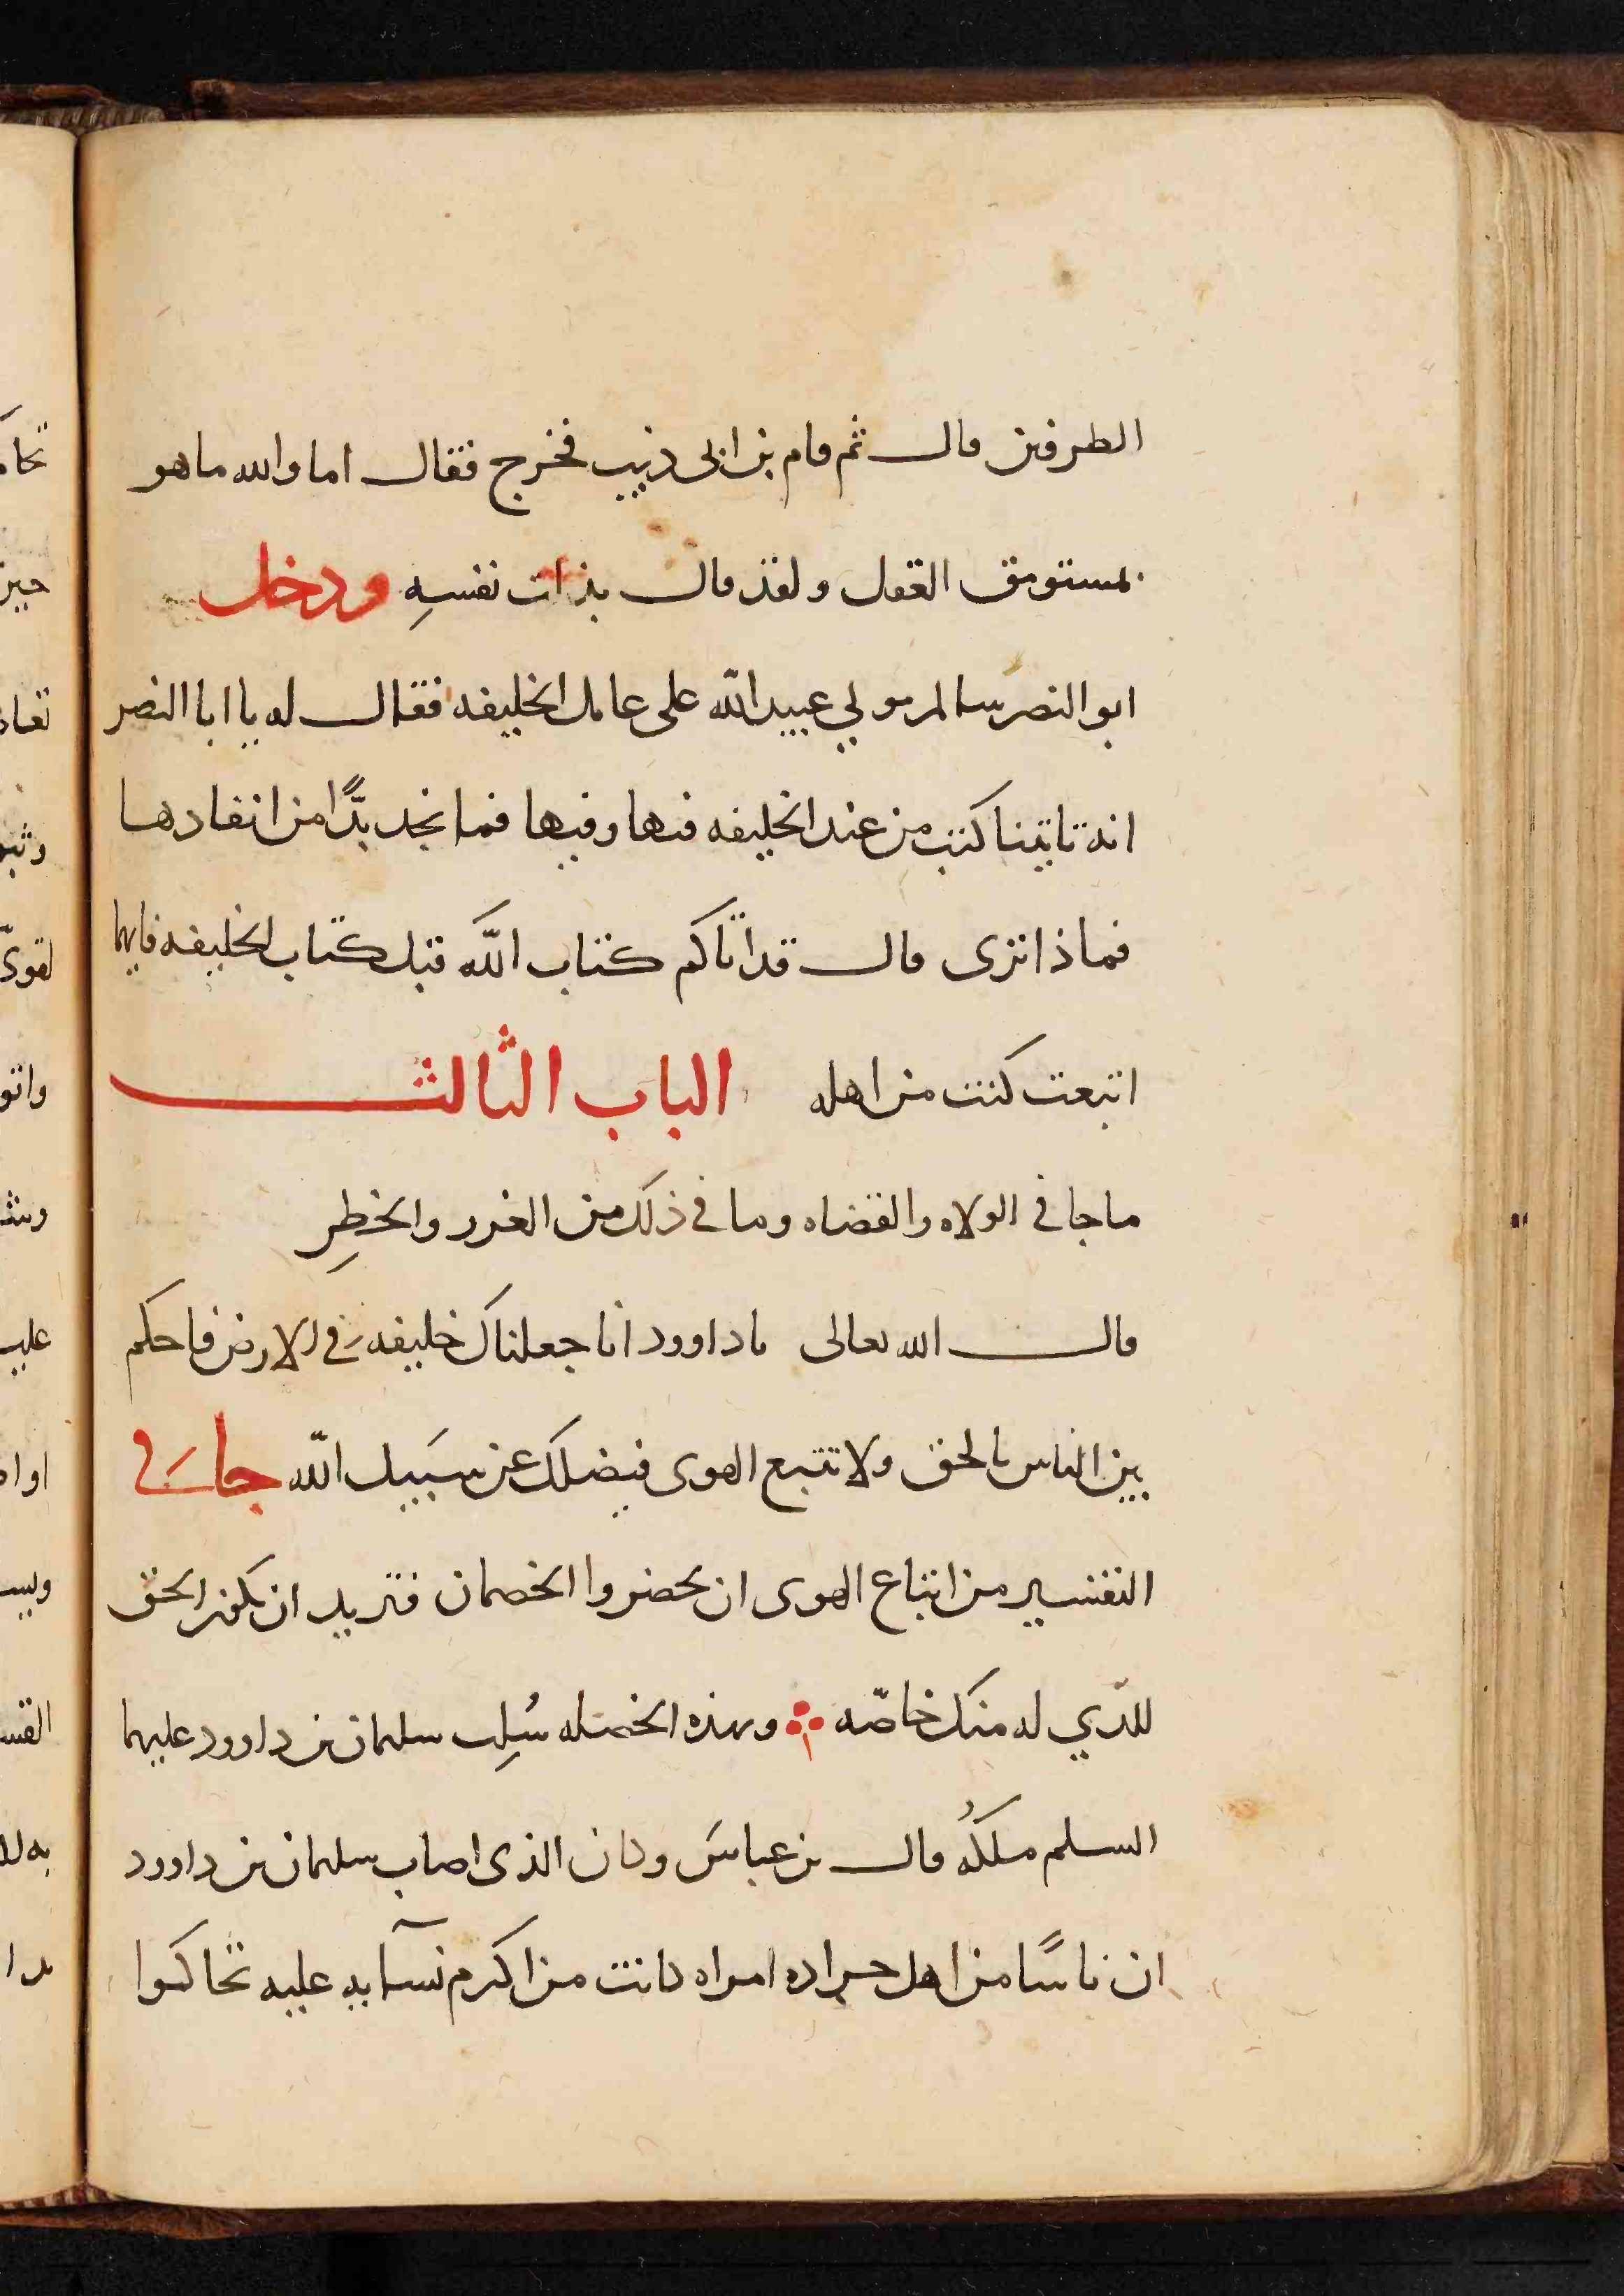 الطرفين قال ثم قام بن ابى ذييب فخرج فقال اما والله ما هو
بمستوسق العقل ولقد قال بذات نفسهِ ودخل
ابو النصر سالم مولي عبيد الله على عامل الخليفه فقال له يا ابا النصر
انه تاتينا كتب من عند الخليفه فيها وفيها فما نجد بدًّا من انفادها
فماذا ترى قال قد اتاكم كتاب الله قبل كتاب الخليفه فايهما
اتبعت كنت من اهله الباب الثالث
ما جا في الولاه والقضاه وما في ذلك من الغرر والخطِر
قال الله تعالى يا داوود انا جعلناك خليفه في الارض فاحكم
بين الناس بالحق ولا تتبع الهوى فيضلك عن سبيل الله جا في
التفسير من اتباع الهوى ان يحضروا الخصمان فتريد ان يكون الحق
للذي له منك خاصّه وبهذه الخصله سُلِب سليمان بن داوود عليهما
السلم ملكهُ قال بن عباس وكان الذى اصاب سليمان بن داوود
ان ناسًا من اهل جراده امراه كانت من اكرم نسآيه عليه تحاكموا